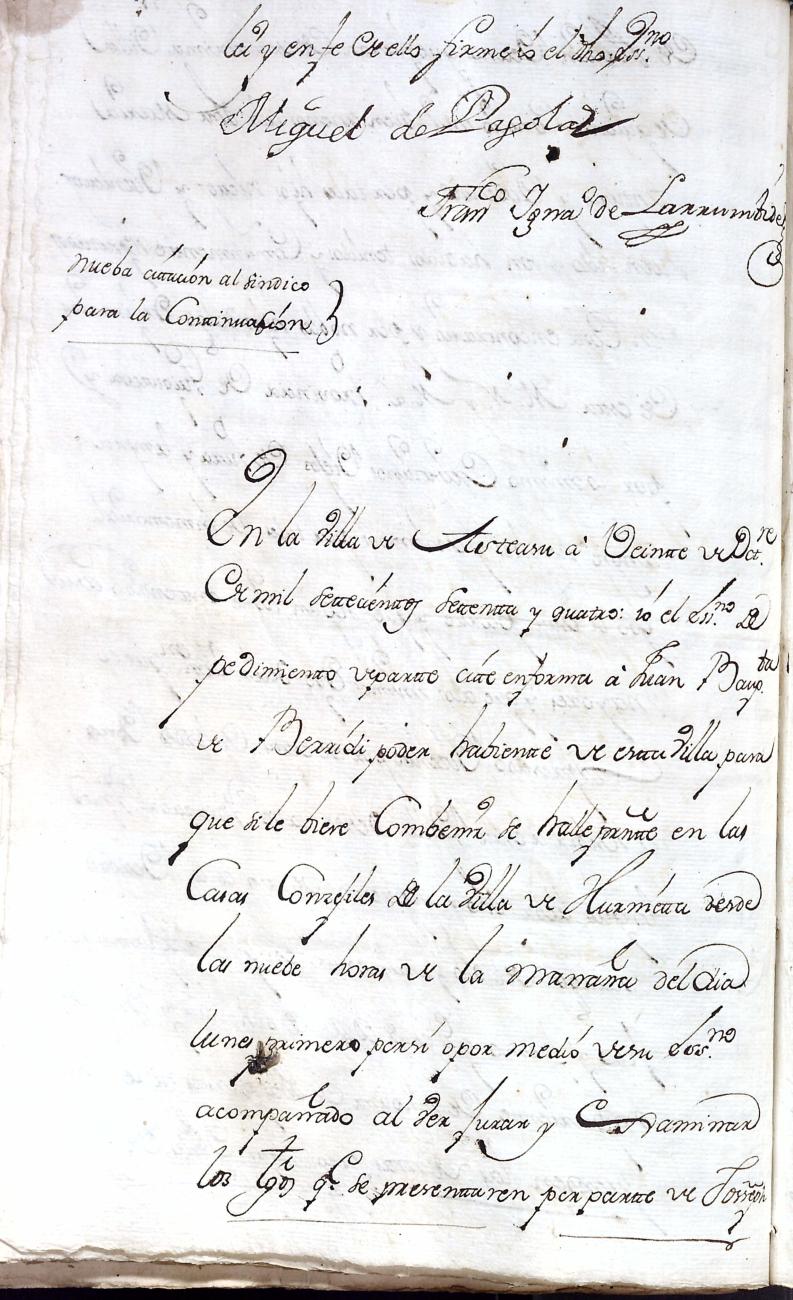 la; y en fe de ello firme yó el dho Ess.no
Miguel de Pagola
Fran.co Igna.o de Larrumbide
nueba citación al sindico
para la Continuación
En la Villa de Asteasu a Veinte de Oct.re
de mil settecienttos settentta y quatro: ió el Ess.no de
pedimiento departte cité en forma á Juan Baup.ta
de Berridi poder habiente de estta Villa para
que si le biere Combenir se halle pres.te en las
Casas Consejiles de la Villa de Hurnietta desde
las nuebe horas de la mañana del dia
lunes primero persi opor medió desu Ess.no
acompañado al ver jurar y Examinar
los tgos q.e se presenttaren por partte de Joseph